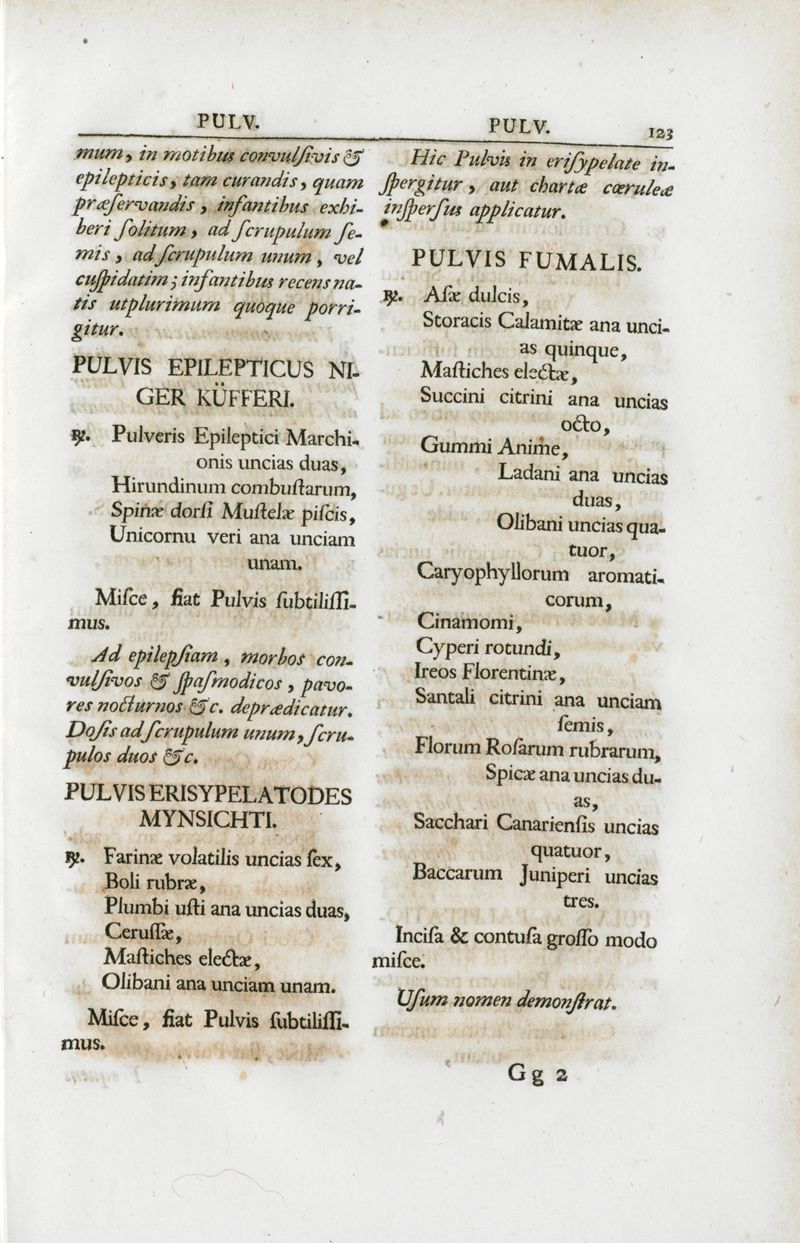 PULV.
mum, in motibus convulſivis &
epilepticis, tam curandis, quam
præſervandis, infantibus exhi-
beri ſolitum, ad ſcrupulum ſe-
mis, ad ſcrupulum unum, vel
cuſpidatim; infantibus recens na-
tis utplurimum quoque porri-
gitur.
PULVIS EPILEPTICUS NI-
GER KÜFFERI.
℞. Pulveris Epileptici Marchi-
onis uncias duas,
Hirundinum combuſtarum,
Spinæ dorſi Muſtelæ piſcis,
Unicornu veri ana unciam
unam.
Miſce, fiat Pulvis ſubtiliſſi-
mus.
Ad epilepſiam, morbos con-
vulſivos & ſpaſmodicos, pavo-
res nocturnos &c. deprædicatur.
Doſis ad ſcrupulum unum, ſcru-
pulos duos &c.
PULVIS ERISYPELATODES
MYNSICHTI.
℞. Farinæ volatilis uncias ſex,
Boli rubræ,
Plumbi uſti ana uncias duas,
Ceruſſæ,
Maſtiches electæ,
Olibani ana unciam unam.
Miſce, fiat Pulvis ſubtiliſſi-
mus.
PULV. 123
Hic Pulvis in eriſypelate in-
ſpergitur, aut chartæ cæruleæ
inſperſus applicatur.
PULVIS FUMALIS.
℞. Aſæ dulcis,
Storacis Calamitæ ana unci-
as quinque,
Maſtiches electæ,
Succini citrini ana uncias
octo,
Gummi Anime,
Ladani ana uncias
duas,
Olibani uncias qua-
tuor,
Caryophyllorum aromati-
corum,
Cinamomi,
Cyperi rotundi,
Ireos Florentinæ,
Santali citrini ana unciam
ſemis,
Florum Roſarum rubrarum,
Spicæ ana uncias du-
as,
Sacchari Canarienſis uncias
quatuor,
Baccarum Juniperi uncias
tres.
Inciſa & contuſa groſſo modo
miſce.
Uſum nomen demonſtrat.
Gg 2